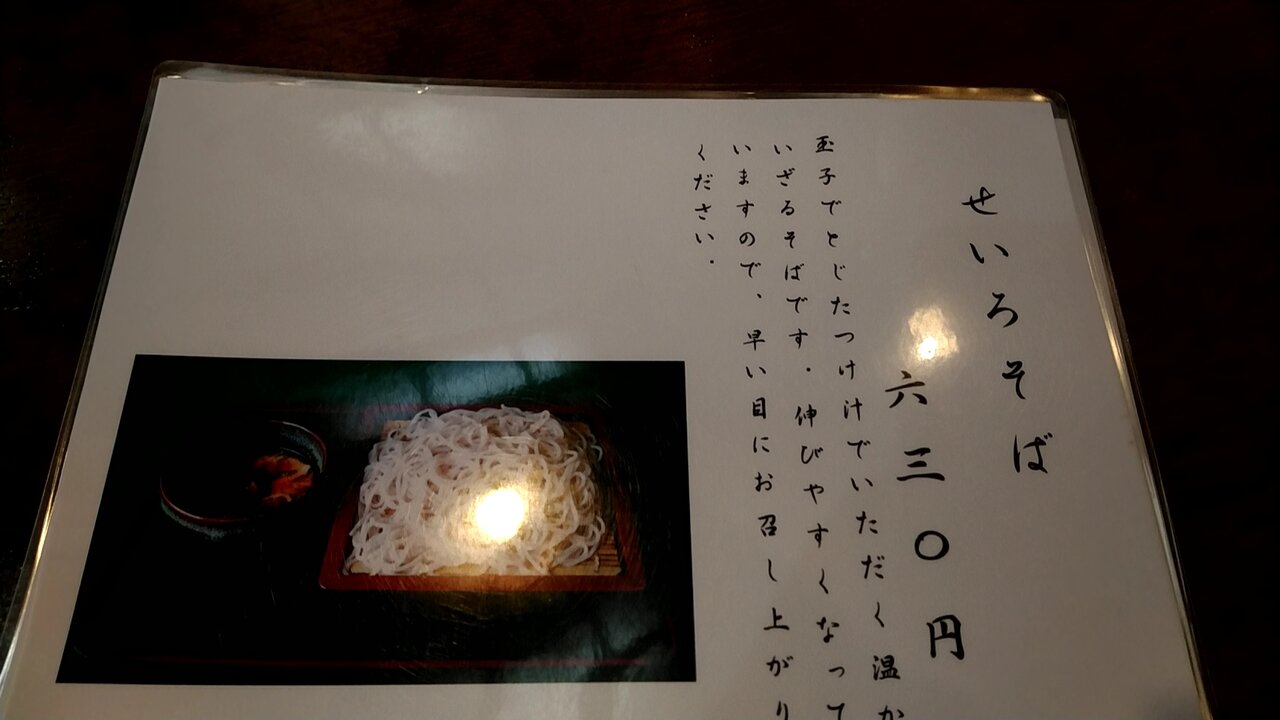 せいろそば
六三〇円
玉子でとじたつけ汁でいただく温か
いざるそばです.伸びやすくなって
いますので、早い目にお召し上がり
ください.